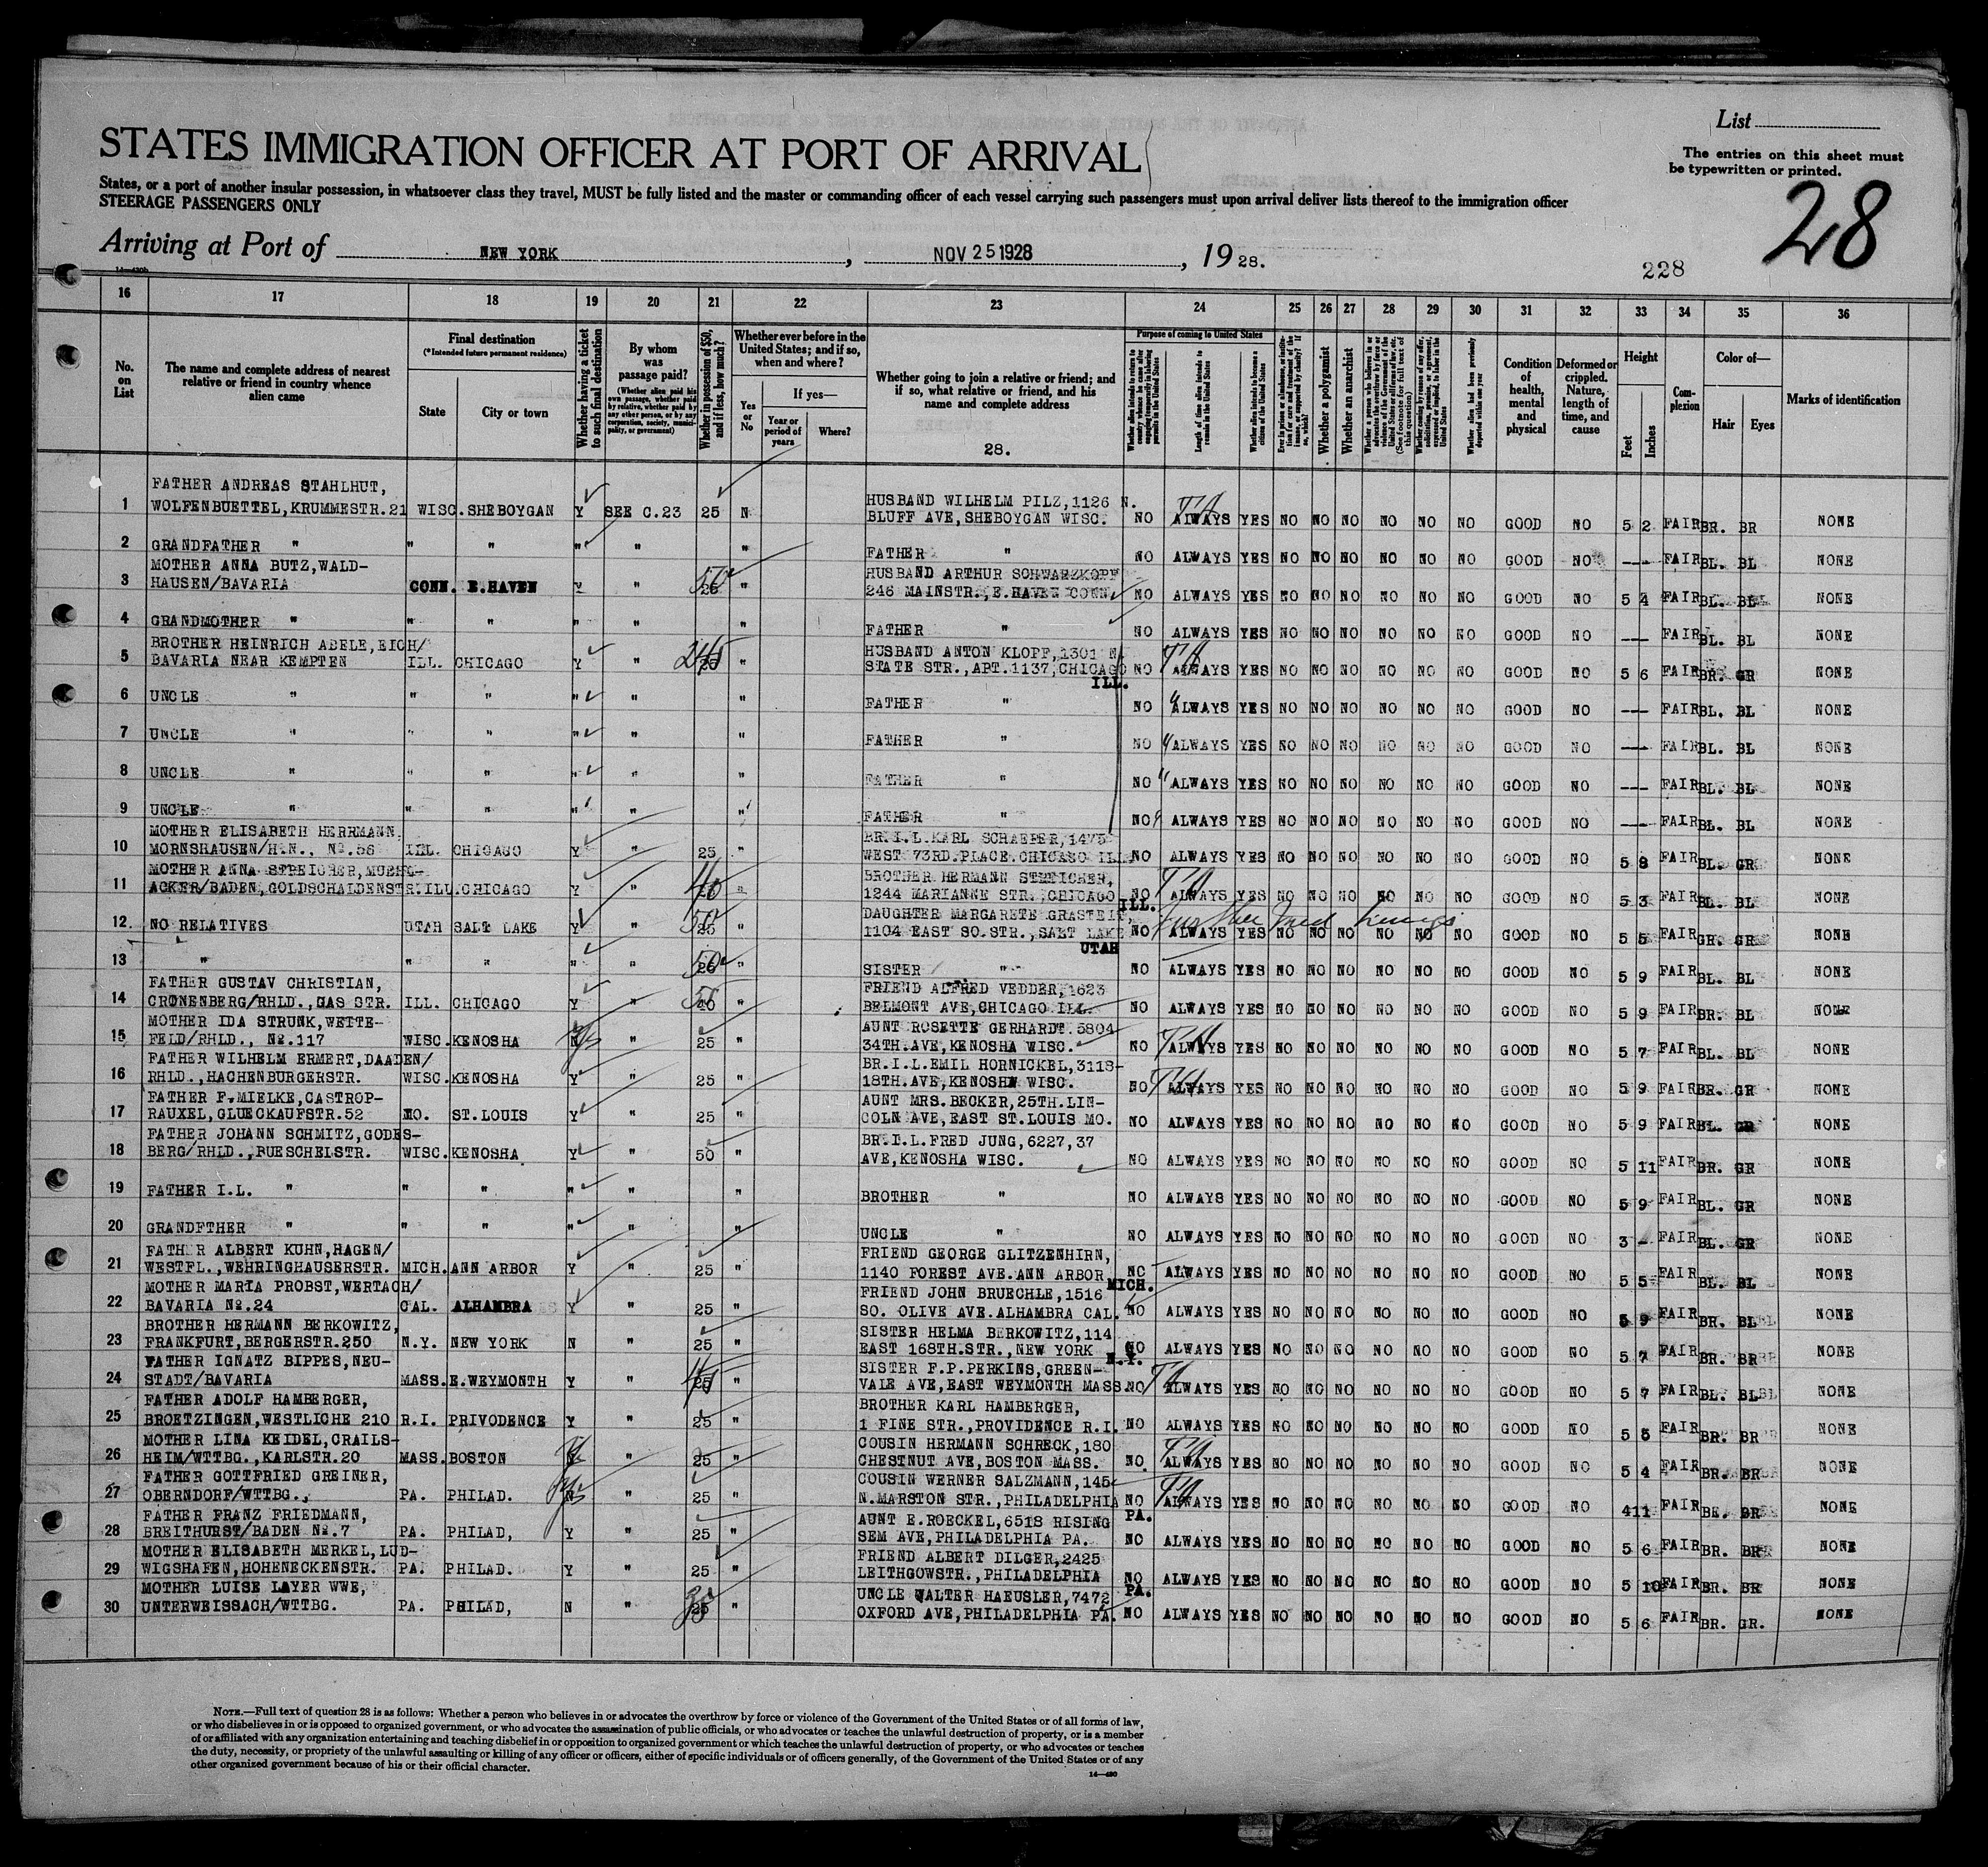 List
The entries on this sheet must
be typewritten or printed.
STATES IMMIGRATION OFFICER AT PORT OF ARRIVAL
States, or a port of another insular possession, in whatsoever class they travel, MUST be fully listed and the master or commanding officer of each vessel carrying such passengers must upon arrival deliver lists thereof to the immigration officer
STEERAGE PASSENGERS ONLY
28
Arriving at Port of NEW YORK , NOV 25 1928 , 19 28.
228
16 17 18 19 20 21 22 23 24 25 26 27 28 29 30 31 32 33 34 35 36
No. on List
The name and complete address of nearest relative or friend in country whence alien came
Final destination
(*Intended future permanent residence)
State City or town
Whether having a ticket to such final destination
By whom was passage paid?
(Whether alien paid his own passage, whether paid by relative, whether paid by any other person, or by any corporation, society, municipality, or government)
Whether in possession of $50, and if less, how much?
Whether ever before in the United States; and if so, when and where?
Yes or No
If yes—
Year or period of years
Where?
Whether going to join a relative or friend; and if so, what relative or friend, and his name and complete address
28.
Purpose of coming to United States
Length of time alien intends to remain in the United States
Whether alien intends to become a citizen of the United States
Whether a polygamist
Whether an anarchist
Condition of health, mental and physical
Deformed or crippled. Nature, length of time, and cause
Height
Feet Inches
Complexion
Color of—
Hair Eyes
Marks of identification
FATHER ANDREAS STAHLHUT, HUSBAND WILHELM PILZ, 1126 N.
1 WOLFENBUETTEL, KRUMMESTR.21 WISC. SHEBOYGAN Y SEE C.23 25 N BLUFF AVE, SHEBOYGAN WISC. NO ALWAYS YES NO NO NO NO NO NO GOOD NO 5 2 FAIR BR. BR NONE
2 GRANDFATHER " " " " " " FATHER " NO ALWAYS YES NO NO NO NO NO NO GOOD NO --- FAIR BL. BL NONE
MOTHER ANNA BUTZ, WALD- HUSBAND ARTHUR SCHWARZKOPF
3 HAUSEN/BAVARIA CONN. E.HAVEN Y " 50 " 246 MAINSTR., E.HAVEN CONN. NO ALWAYS YES NO NO NO NO NO NO GOOD NO 5 4 FAIR BL. BL NONE
4 GRANDMOTHER " " " " " " FATHER " NO ALWAYS YES NO NO NO NO NO NO GOOD NO --- FAIR BL. BL NONE
BROTHER HEINRICH ABELE, EICH/ HUSBAND ANTON KLOPF, 1301 N.
5 BAVARIA NEAR KEMPTEN ILL. CHICAGO Y " " STATE STR., APT.1137, CHICAGO ILL. NO ALWAYS YES NO NO NO NO NO NO GOOD NO 5 6 FAIR BR. GR NONE
6 UNCLE " " " " " " FATHER " NO ALWAYS YES NO NO NO NO NO NO GOOD NO --- FAIR BL. BL NONE
7 UNCLE " " " " " " FATHER " NO ALWAYS YES NO NO NO NO NO NO GOOD NO --- FAIR BL. BL NONE
8 UNCLE " " " " " " FATHER " NO ALWAYS YES NO NO NO NO NO NO GOOD NO --- FAIR BL. BL NONE
9 UNCLE " " " " " " FATHER " NO ALWAYS YES NO NO NO NO NO NO GOOD NO --- FAIR BL. BL NONE
MOTHER ELISABETH HERRMANN, BR.I.L.KARL SCHAEFER, 1475
10 MORNSHAUSEN/H.N., No.56 ILL. CHICAGO Y " 25 " WEST 73RD.PLACE.CHICAGO ILL. NO ALWAYS YES NO NO NO NO NO NO GOOD NO 5 8 FAIR BL. GR NONE
MOTHER ANNA STREICHER, MUEHL- BROTHER HERMANN STREICHER,
11 ACKER/BADEN, GOLDSCHALDENSTR. ILL. CHICAGO Y " 40 " 1244 MARIANNE STR., CHICAGO ILL. NO ALWAYS YES NO NO NO NO NO NO GOOD NO 5 3 FAIR BL. BL NONE
DAUGHTER MARGARETE
12 NO RELATIVES UTAH SALT LAKE Y " 50 " 1104 EAST SO.STR., SALT LAKE UTAH NO ALWAYS YES NO NO NO NO NO NO GOOD NO 5 5 FAIR GR. GR NONE
13 " " " " " 50 " SISTER " NO ALWAYS YES NO NO NO NO NO NO GOOD NO 5 9 FAIR BL. BL NONE
FATHER GUSTAV CHRISTIAN, FRIEND ALFRED VEDDER, 1623
14 CRONENBERG/RHLD., GAS STR. ILL. CHICAGO Y " 50 " BELMONT AVE, CHICAGO ILL. NO ALWAYS YES NO NO NO NO NO NO GOOD NO 5 9 FAIR BR. BL NONE
MOTHER IDA STRUNK, WETTE- AUNT ROSETTE GERHARDT. 5804
15 FELD/RHLD., No.117 WISC. KENOSHA N " 25 " 34TH.AVE, KENOSHA WISC. NO ALWAYS YES NO NO NO NO NO NO GOOD NO 5 7 FAIR BL. BL NONE
FATHER WILHELM ERMERT, DAADEN/ BR.I.L.EMIL HORNICKEL, 3118-
16 RHLD., HACHENBURGERSTR. WISC. KENOSHA Y " 25 " 18TH.AVE, KENOSHA WISC. NO ALWAYS YES NO NO NO NO NO NO GOOD NO 5 9 FAIR BR. GR NONE
FATHER F.MIELKE, CASTROP- AUNT MRS.BECKER, 25TH.LIN-
17 RAUXEL, GLUECKAUFSTR.52 MO. ST.LOUIS Y " 25 " COLN AVE, EAST ST.LOUIS MO. NO ALWAYS YES NO NO NO NO NO NO GOOD NO 5 9 FAIR BL. GR NONE
FATHER JOHANN SCHMITZ, GODES- BR.I.L.FRED JUNG, 6227, 37
18 BERG/RHLD., RUESCHELSTR. WISC. KENOSHA Y " 50 " AVE, KENOSHA WISC. NO ALWAYS YES NO NO NO NO NO NO GOOD NO 5 11 FAIR BR. GR NONE
19 FATHER I.L. " " " " " " BROTHER " NO ALWAYS YES NO NO NO NO NO NO GOOD NO 5 9 FAIR BL. GR NONE
20 GRANDFTHER " " " " " " UNCLE " NO ALWAYS YES NO NO NO NO NO NO GOOD NO 3 - FAIR BL. GR NONE
FATHER ALBERT KUHN, HAGEN/ FRIEND GEORGE GLITZENHIRN,
21 WESTFL., WEHRINGHAUSERSTR. MICH. ANN ARBOR Y " 25 " 1140 FOREST AVE.ANN ARBOR MICH. NO ALWAYS YES NO NO NO NO NO NO GOOD NO 5 5 FAIR BL. BL NONE
MOTHER MARIA PROBST, WERTACH/ FRIEND JOHN BRUECHLE, 1516
22 BAVARIA No.24 CAL. ALHAMBRA Y " 25 " SO. OLIVE AVE.ALHAMBRA CAL. NO ALWAYS YES NO NO NO NO NO NO GOOD NO 5 9 FAIR BR. BL NONE
BROTHER HERMANN BERKOWITZ, SISTER HELMA BERKOWITZ, 114
23 FRANKFURT, BERGERSTR.250 N.Y. NEW YORK N " 25 " EAST 168TH.STR., NEW YORK N.Y. NO ALWAYS YES NO NO NO NO NO NO GOOD NO 5 7 FAIR BR. BR NONE
FATHER IGNATZ BIPPES, NEU- SISTER F.P.PERKINS, GREEN-
24 STADT/BAVARIA MASS. E.WEYMONTH Y " " VALE AVE, EAST WEYMONTH MASS. NO ALWAYS YES NO NO NO NO NO NO GOOD NO 5 7 FAIR BL. BL NONE
FATHER ADOLF HAMBERGER, BROTHER KARL HAMBERGER,
25 BROETZINGEN, WESTLICHE 210 R.I. PRIVODENCE Y " 25 " 1 FINE STR., PROVIDENCE R.I. NO ALWAYS YES NO NO NO NO NO NO GOOD NO 5 5 FAIR BR. BR NONE
MOTHER LINA KEIDEL, CRAILS- COUSIN HERMANN SCHRECK, 180
26 HEIM/WTTBG., KARLSTR.20 MASS. BOSTON Y " 25 " CHESTNUT AVE, BOSTON MASS. NO ALWAYS YES NO NO NO NO NO NO GOOD NO 5 4 FAIR BR. BR NONE
FATHER GOTTFRIED GREINER, COUSIN WERNER SALZMANN, 145
27 OBERNDORF/WTTBG., PA. PHILAD. N " 25 " N.MARSTON STR., PHILADELPHIA PA. NO ALWAYS YES NO NO NO NO NO NO GOOD NO 4 11 FAIR BR. BR NONE
FATHER FRANZ FRIEDMANN, AUNT E.ROECKEL, 6518 RISING
28 BREITHURST/BADEN No.7 PA. PHILAD, Y " 25 " SEM AVE, PHILADELPHIA PA. NO ALWAYS YES NO NO NO NO NO NO GOOD NO 5 6 FAIR BR. BR NONE
MOTHER ELISABETH MERKEL, LUD- FRIEND ALBERT DILGER, 2425
29 WIGSHAFEN, HOHENECKENSTR. PA. PHILAD. Y " 25 " LEITHGOWSTR., PHILADELPHIA PA. NO ALWAYS YES NO NO NO NO NO NO GOOD NO 5 10 FAIR BR. BR NONE
MOTHER LUISE LAYER WWE, UNCLE WALTER HAEUSLER, 7472
30 UNTERWEISSACH/WTTBG. PA. PHILAD, N " " OXFORD AVE, PHILADELPHIA PA. NO ALWAYS YES NO NO NO NO NO NO GOOD NO 5 6 FAIR BR. GR. NONE
NOTE.—Full text of question 28 is as follows: Whether a person who believes in or advocates the overthrow by force or violence of the Government of the United States or of all forms of law,
or who disbelieves in or is opposed to organized government, or who advocates the assassination of public officials, or who advocates or teaches the unlawful destruction of property, or is a member
of or affiliated with any organization entertaining and teaching disbelief in or opposition to organized government or which teaches the unlawful destruction of property, or who advocates or teaches
the duty, necessity, or propriety of the unlawful assaulting or killing of any officer or officers, either of specific individuals or of officers generally, of the Government of the United States or of any
other organized government because of his or their official character.
14—430